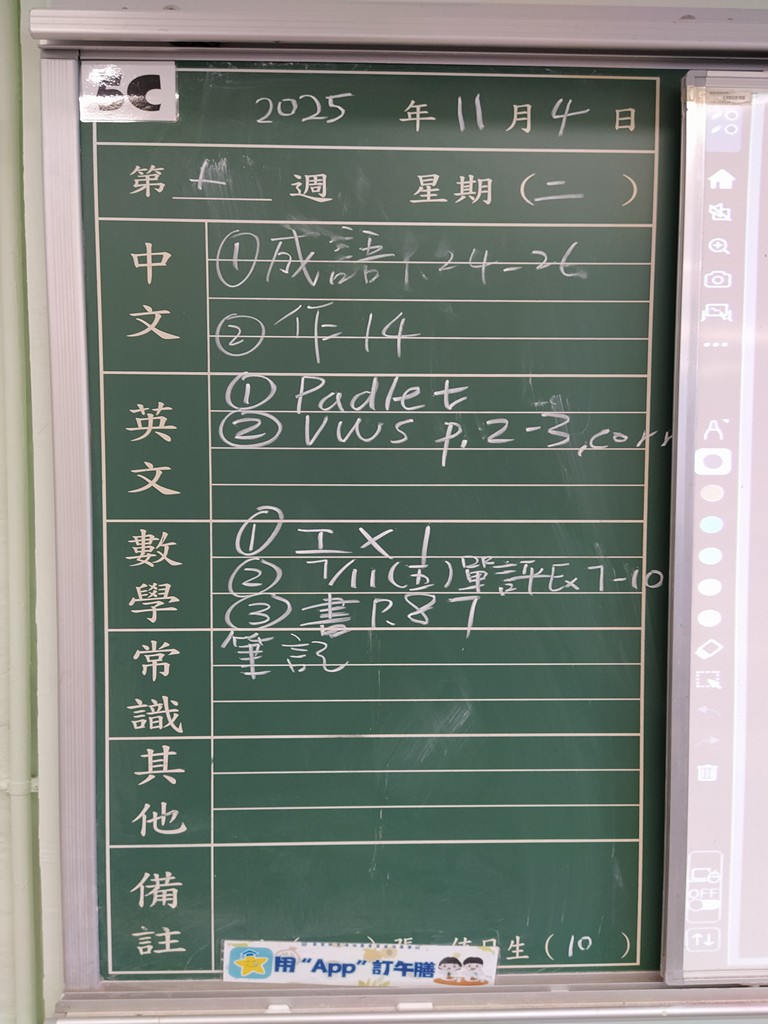 5C
2025 年 11 月 4 日
第 十 週 星期 (二)
中文
①成語 P.24-26
②作 14
英文
① Padlet
② VWS p.2-3, corr
數學
① 工 X 1
② 7/11 (五) 單評 Ex 7-10
③ 書 P.87
常識
筆記
其他
備註
值日生 (10)
用 "App" 訂午膳
A
OFF